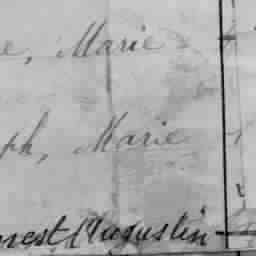 e, Marie
ph, Marie
nest Augustin